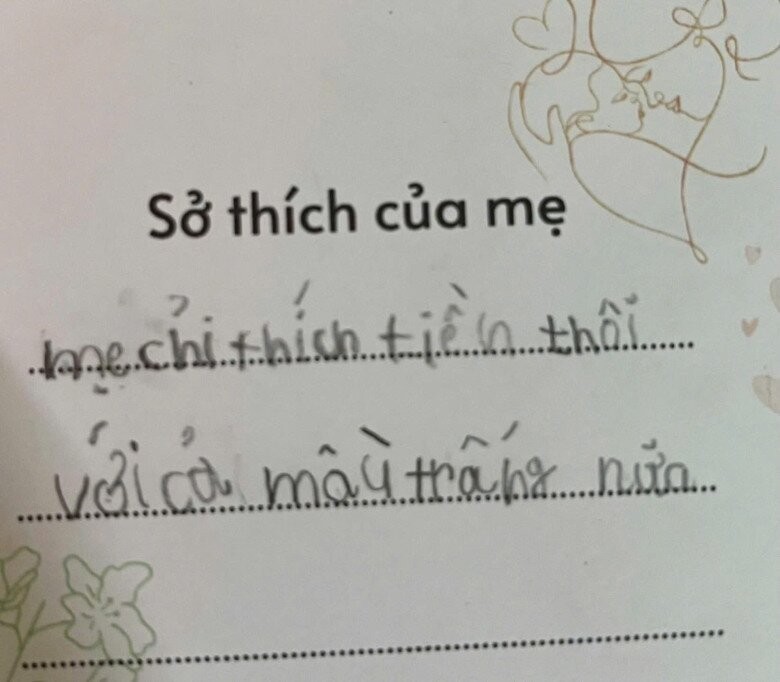 Sở thích của mẹ
mẹ chỉ thích tiền thôi
với cả mầù trấng nữa